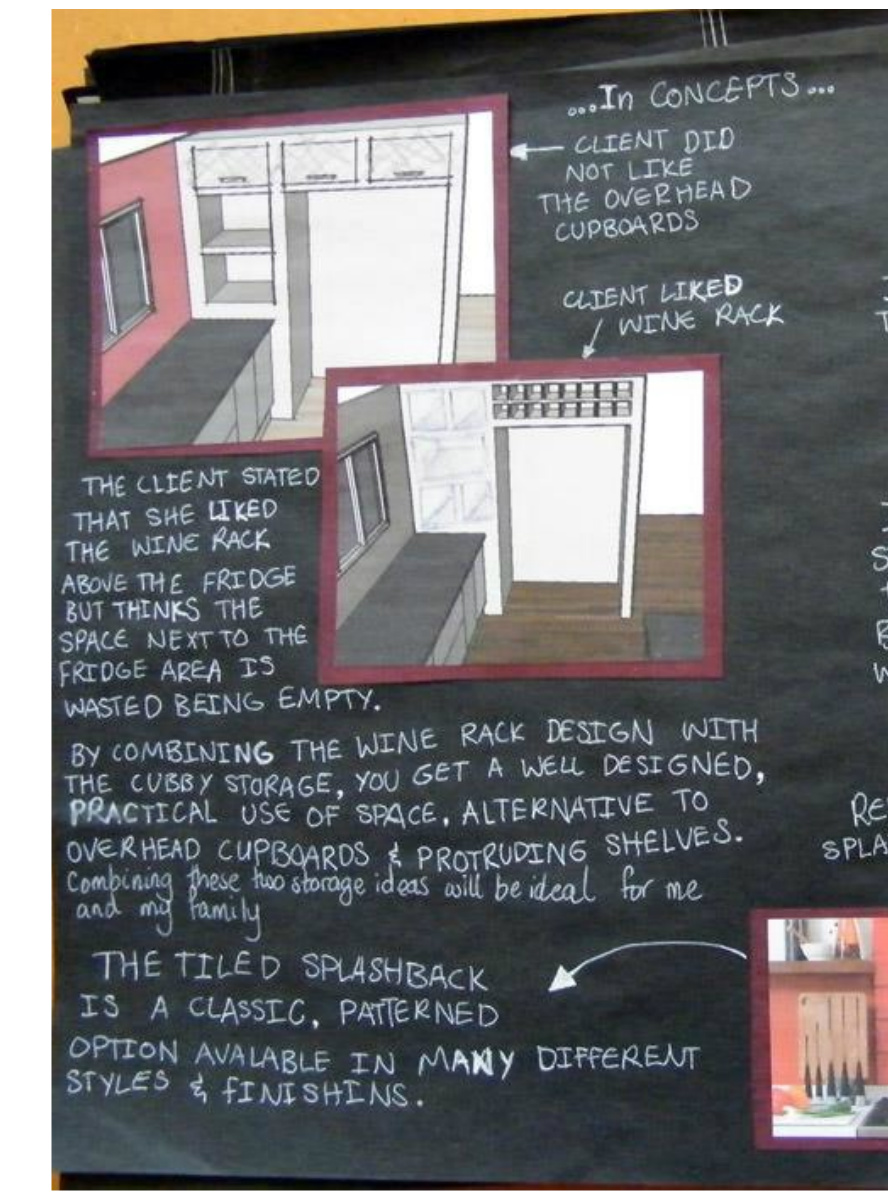 ...In CONCEPTS...
CLIENT DID
NOT LIKE
THE OVERHEAD
CUPBOARDS
CLIENT LIKED
WINE RACK
THE CLIENT STATED
THAT SHE LIKED
THE WINE RACK
ABOVE THE FRIDGE
BUT THINKS THE
SPACE NEXT TO THE
FRIDGE AREA IS
WASTED BEING EMPTY.
BY COMBINING THE WINE RACK DESIGN WITH
THE CUBBY STORAGE, YOU GET A WELL DESIGNED,
PRACTICAL USE OF SPACE, ALTERNATIVE TO
OVERHEAD CUPBOARDS & PROTRUDING SHELVES.
Combining these two storage ideas will be ideal for me
and my family
THE TILED SPLASHBACK
IS A CLASSIC, PATTERNED
OPTION AVALABLE IN MANY DIFFERENT
STYLES & FINISHINS.
RE
SPLA